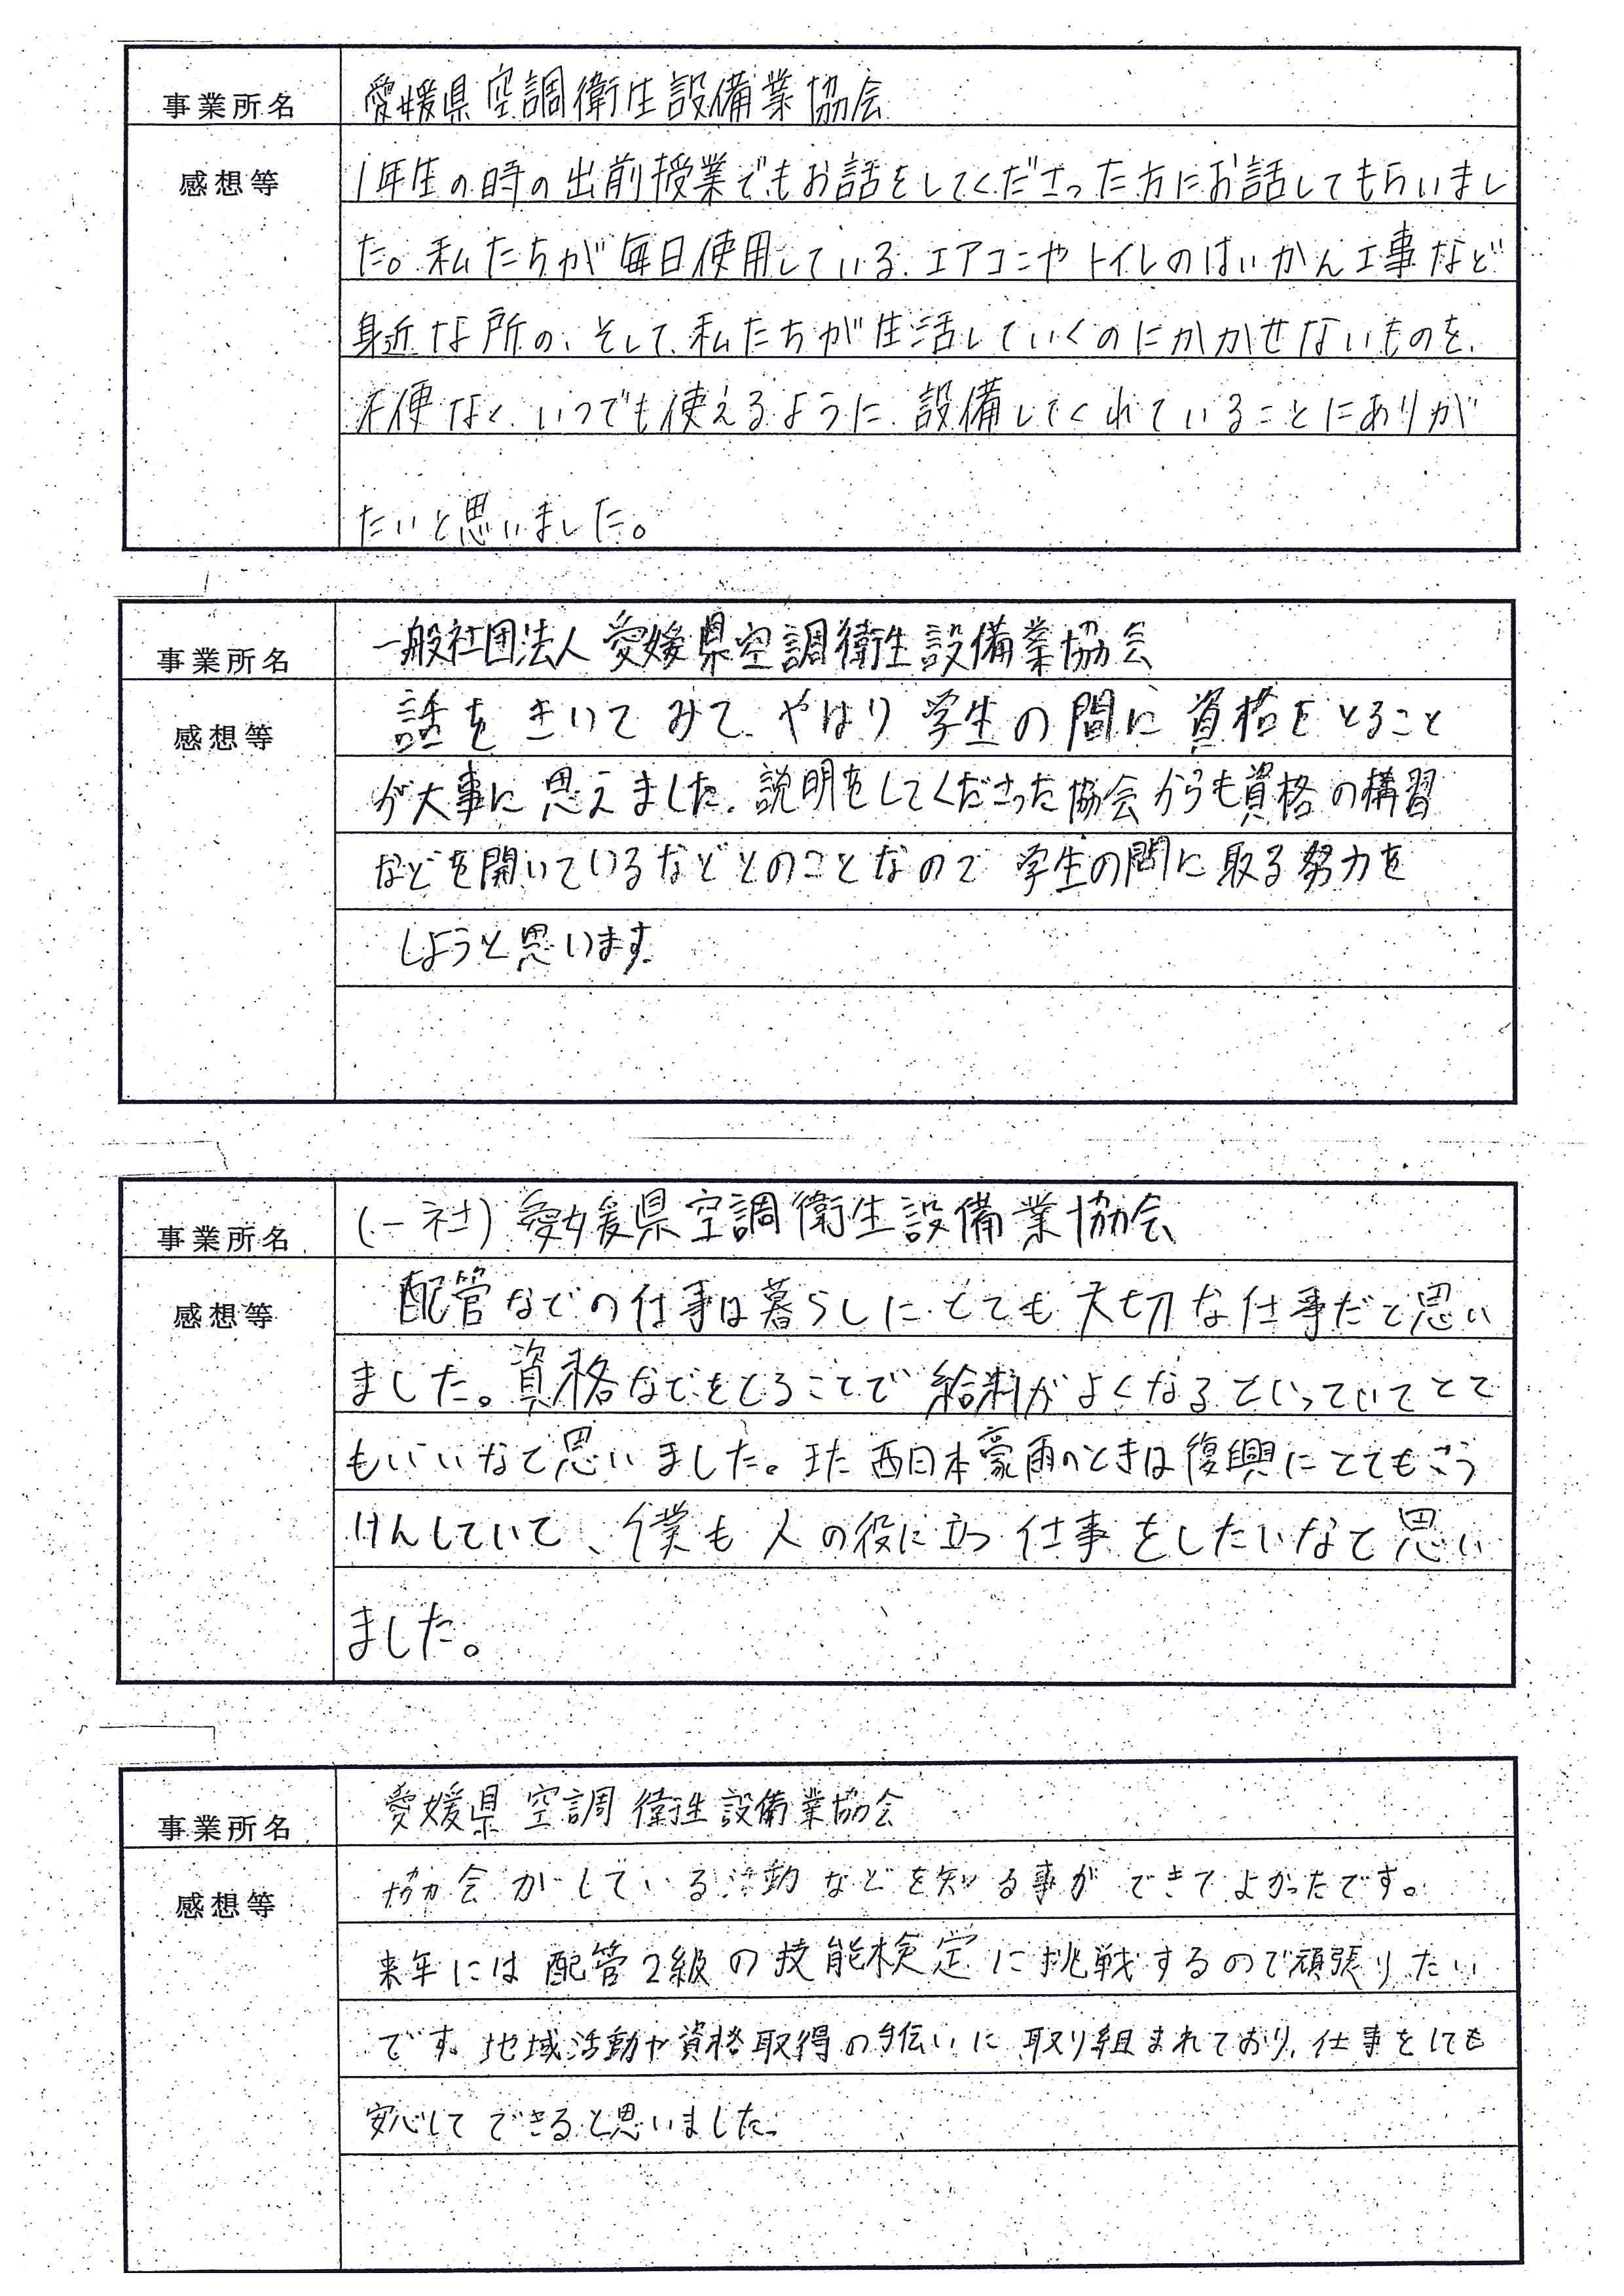 事業所名 愛媛県空調衛生設備業協会
感想等 1年生の時の出前授業でもお話をしてくださった方にお話してもらいまし
た。私たちが毎日使用している、エアコンやトイレのはいかん工事など
身近な所の、そして、私たちが生活していくのにかかせないものを、
不便なく、いつでも使えるように、設備してくれていることにありが
たいと思いました。
事業所名 一般社団法人愛媛県空調衛生設備業協会
感想等 話をきいてみて、やはり学生の間に資格をとること
が大事に思えました。説明をしてくださった協会からも資格の構習
などを開いているなどとのことなので学生の間に取る努力を
しようと思います。
事業所名 (一社)愛媛県空調衛生設備業協会
感想等 配管などの仕事は暮らしにとても大切な仕事だと思い
ました。資格などをとることで給料がよくなるといっていてとて
もいいなと思いました。また西日本豪雨のときは復興にとてもこう
けんしていて、僕も人の役に立つ仕事をしたいなと思い
ました。
事業所名 愛媛県空調衛生設備業協会
感想等 協会がしている活動などを知る事ができてよかったです。
来年には配管2級の技能検定に挑戦するので頑張りたい
です。地域活動や資格取得の手伝いに取り組まれており、仕事をしても
安心してできると思いました。